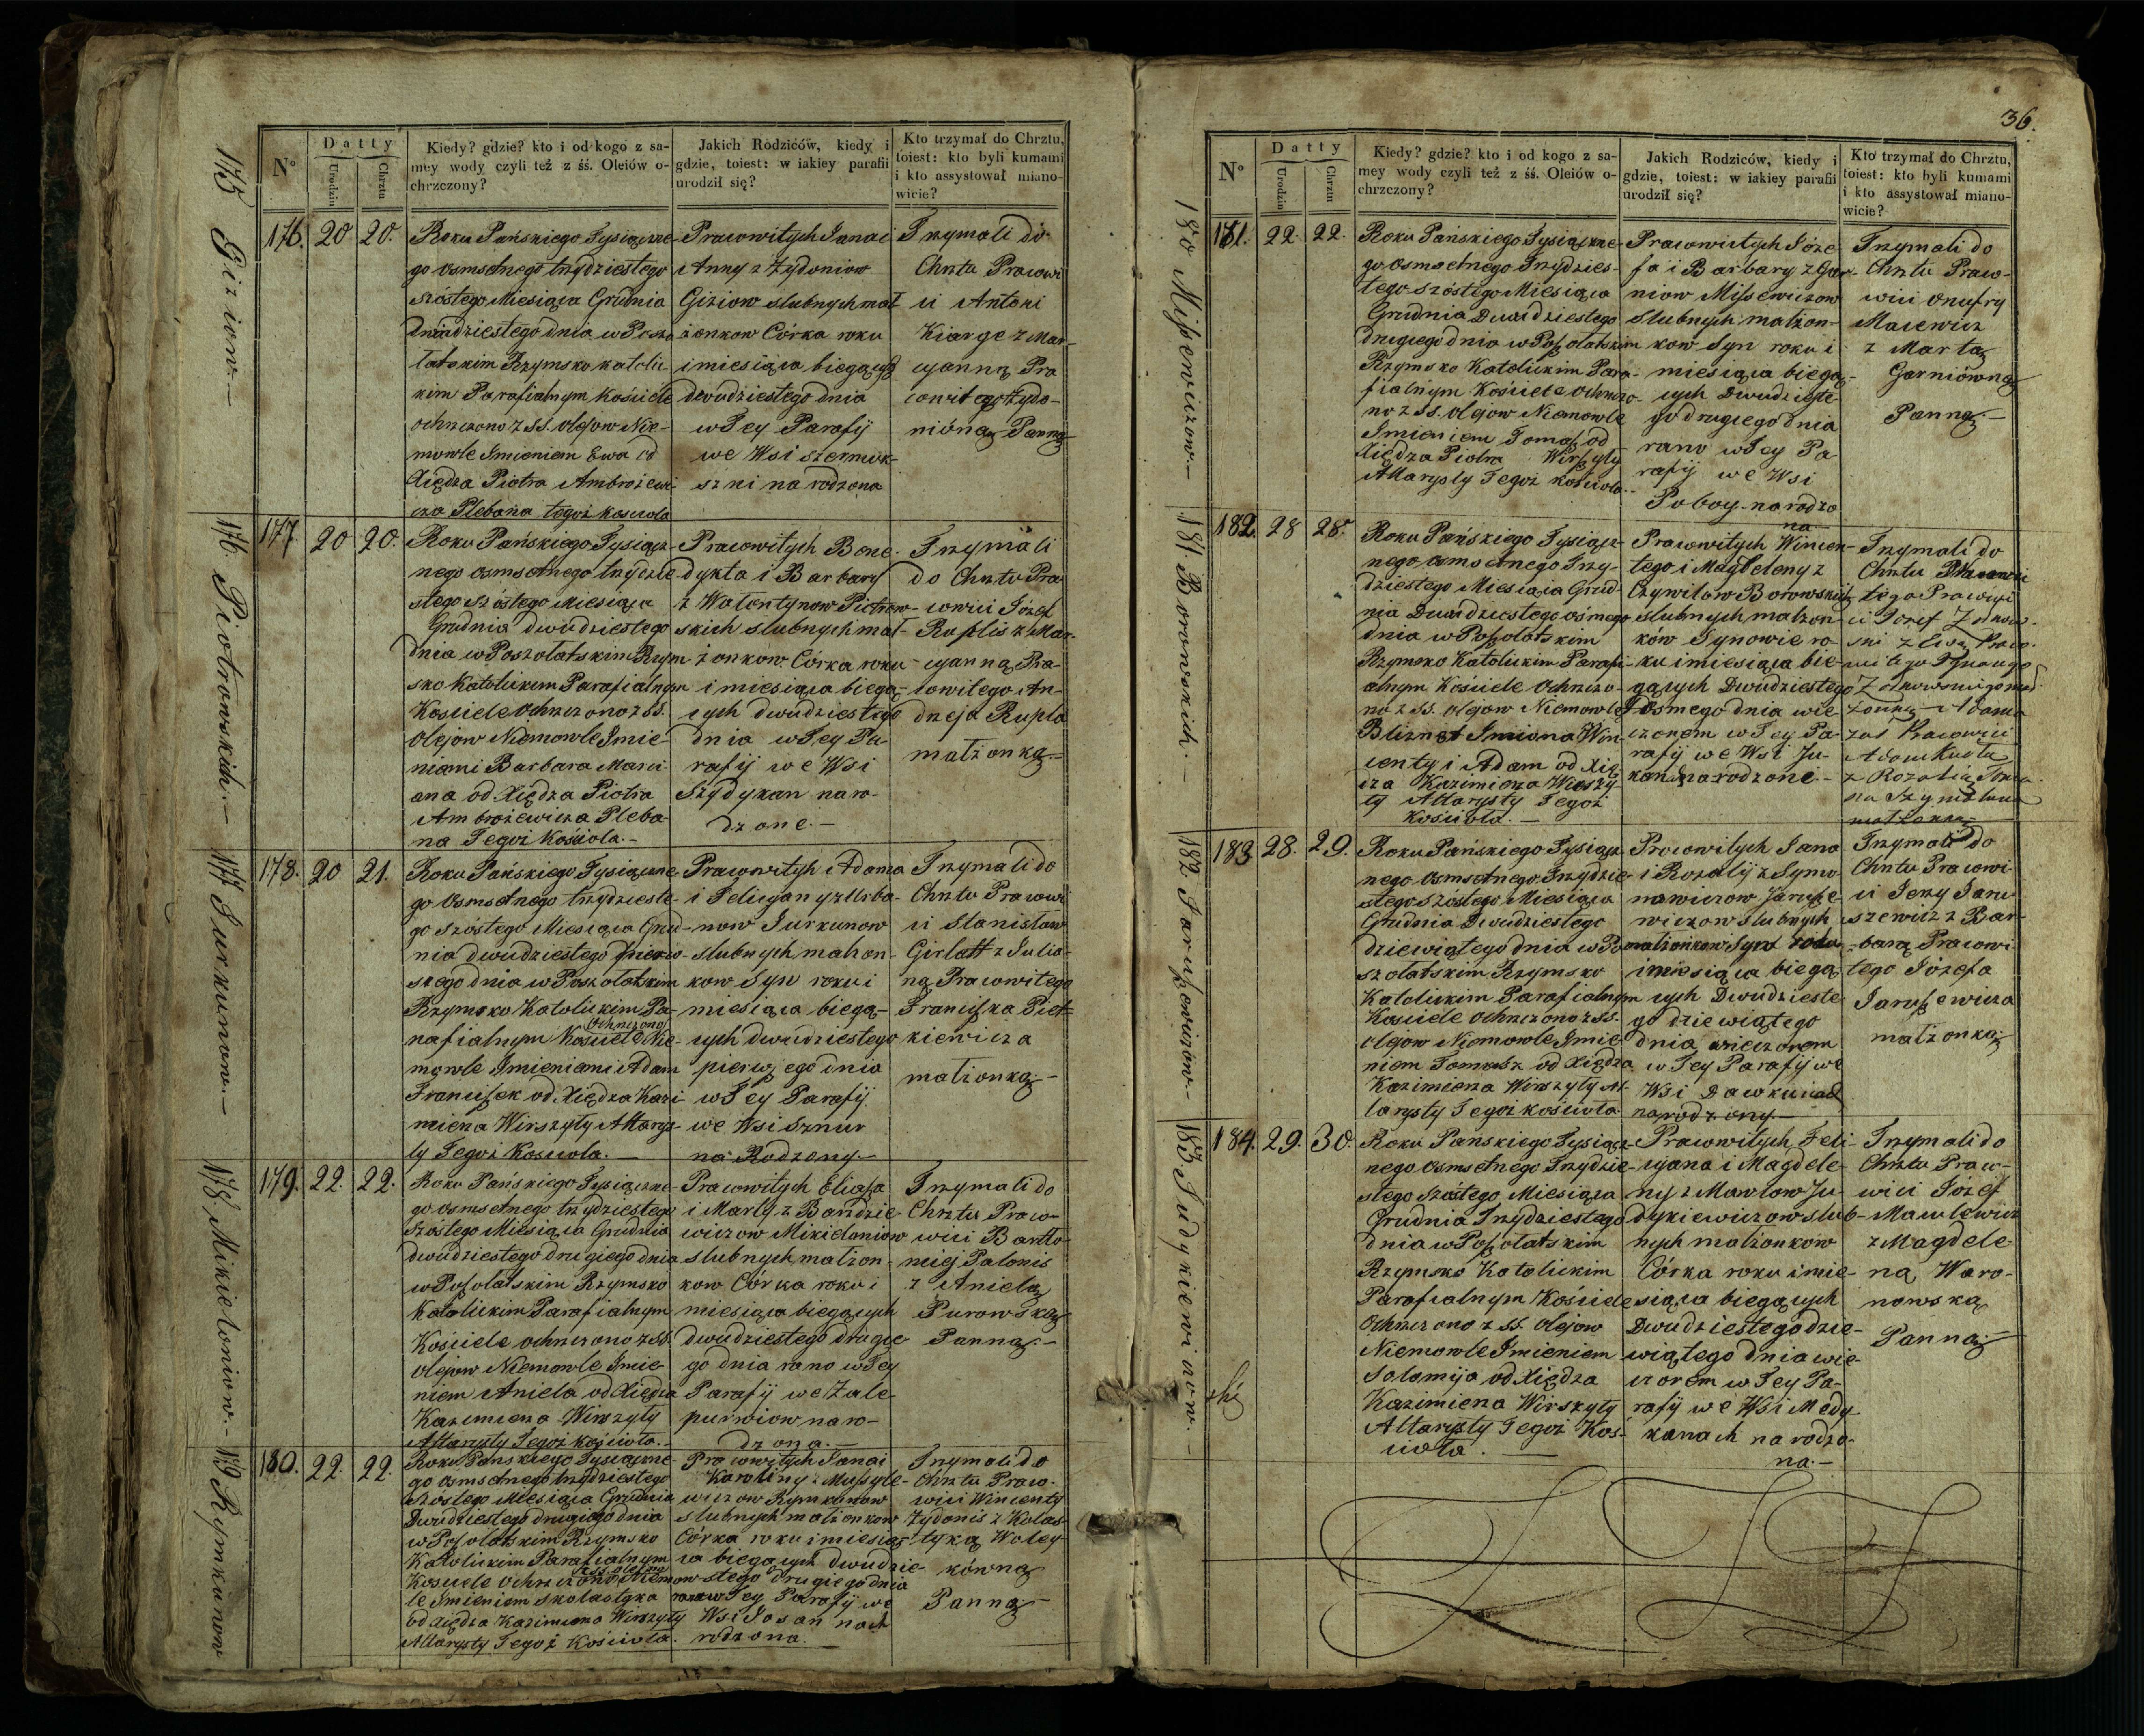 N°
Datty
Urodzin
Chrztu
Kiedy? gdzie? kto i od kogo z sa-
mey wody czyli też z śś. Oleiów o-
chrzczony?
Jakich Rodziców, kiedy i
gdzie, toiest: w iakiey parafii
urodził się?
Kto trzymał do Chrztu,
toiest: kto byli kumami
i kto assystował miano-
wicie?
175 Gizionow.-
176. 20 20.
Roku Pańskiego Tysiączne-
go osmsetnego trzydziestego
szóstego Miesiąca Grudnia
dwudziestego dnia w Posza
łatskim Rzymsko katolic-
kim Parafialnym Kościele
ochrzczono z SS. olejow Nie-
mowle Imieniem Ewa od
Xiędza Piotra Ambrożewi-
cza Plebana tegoż kosciola
Pracowitych Jana i
Anny z Żydoniow
Giziow slubnych mał-
żonkow Córka roku
i miesiąca biegącyh
dwudziestego dnia
w Tey Parafij
we Wsi
narodzona
Trzymali do
Chrztu Pracowi
ci Antoni
z Mar-
cyanną Pra
cowitego Żydo-
nióną Panną
176 Piotrowskich.-
177. 20 20.
Roku Pańskiego Tysiącz-
nego osmsetnego trzydzie
stego szóstego Miesiąca
Grudnia dwudziestego
dnia w Poszołatskim Rzym
sko Katolickim Parafialnym
Kosciele ochrzczono z SS.
Olejow Niemowle Imie-
niami Barbara Marci-
ana od Xiędza Piotra
Ambrożewicza Pleba-
na Tegoż Kościoła.-
Pracowitych Bene-
dykta i Barbary
z Walentynow Piotrow-
skich slubnych mał-
żonkow Córka roku
i miesiąca biegą-
cych dwudziestego
dnia w Tey Pa-
rafij we Wsi
Szydykan naro-
dzone.-
Trzymali
do Chrztu Pra
cowici Józef
Ruplis z Mar-
cyanną Pra-
cowitego An-
drzeja Rupla
małżonką.-
177 Jurkunow.-
178. 20 21.
Roku Pańskiego Tysiączne-
go osmsetnego trzydzieste-
go szóstego Miesiąca Grud-
nia dwudziestego pierw-
szego dnia w Poszołatskim
Rzymsko Katolickim Pa-
rafialnym Kościele Nie-
ochrzczono
mowle Imieniami Adam
Franciszek od Xiędza Kazi
mierza Wirszyły Altarys-
ty Tegoż Kosciola.-
Pracowitych Adama
i Felicyany z Urba-
now Jurkunow
slubnych małżon-
kow Syn roku i
miesiąca biegą-
cych dwudziestego
pierwszego dnia
w Tey Parafij
we Wsi Sznur
na Rodzony.-
Trzymali do
Chrztu Pracowi
ci Stanisław
Girlatt z Julia-
ną Pracowitego
Franciszka Piet-
kiewicza
małżonką.-
178 Mikieloniow.-
179. 22. 22.
Roku Pańskiego Tysiączne-
go osmsetnego trzydziestego
szóstego Miesiąca Grudnia
dwudziestego drugiego dnia
w Poszołatskim Rzymsko
Katolickim Parafialnym
Kościele ochrzczono z SS.
Olejow Niemowle Imie-
niem Aniela od Xiędza
Kazimierza Wirszyły
Altarysty Tegoż kościoła.-
Pracowitych Eliasza
i Marty z Bandzie-
wiczow Mikieloniow
slubnych małżon-
kow Córka roku i
miesiąca biegących
dwudziestego drugie-
go dnia rano w Tey
Parafij we Zale-
purwiow naro-
dzona.-
Trzymali do
Chrztu Praco-
wici Bartło-
miej Palonis
z Anielą
Purowską
Panną.-
179 Rymkunow
180. 22. 22.
Roku Pańskiego Tysiączne-
go osmsetnego trzydziestego
szóstego Miesiąca Grudnia
Dwudziestego drugiego dnia
w Poszołatskim Rzymsko
Katolickim Parafialnym
z SS. olejow
Kosciele ochrzczono Niemow-
le Imieniem Skolastyka
od Xiędza Kazimierza Wirszyły
Altarysty Tegoż Kościoła.
Pracowitych Jana i
Karoliny z Mussyle-
wiczow Rymkunow
slubnych małżonkow
Córka roku i miesią-
ca biegących dwudzie-
stego drugiego dnia
rano w Tey Parafij we
Wsi Josan nach
rodzona.
Trzymali do
Chrztu Praco-
wici Wincenty
Żydonis z Kolas-
tyką Woley-
kówną
Panną.-
36.
N°
Datty
Urodzin
Chrztu
Kiedy? gdzie? kto i od kogo z sa-
mey wody czyli też z śś. Oleiów o-
chrzczony?
Jakich Rodziców, kiedy i
gdzie, toiest: w iakiey parafii
urodził się?
Kto trzymał do Chrztu,
toiest: kto byli kumami
i kto assystował miano-
wicie?
180 Missewiczow.-
181. 22. 22.
Roku Pańskiego Tysiączne-
go osmsetnego Trzydzies-
tego szóstego Miesiąca
Grudnia Dwudziestego
drugiego dnia w Poszołatskim
Rzymsko Katolickim Para-
fialnym Kościele ochrzczo-
no z SS. olejow Niemowle
Imieniem Tomasz od
Xiędza Piotra Wirszyły
Altarysty Tegoż kościoła.-
Pracowitych Józe-
fa i Barbary z Gar-
niow Missewiczow
Slubnych małżon-
kow Syn roku i
miesiąca biegą-
cych Dwudzieste-
go drugiego dnia
rano w Tey Pa-
rafij we Wsi
Poboy narodzo
na
Trzymali do
Chrztu Praco-
wici Onufry
Macewicz
z Martą
Garniówną
Panną.-
181 Borowskich.-
182. 28 28.
Roku Pańskiego Tysiącz-
nego osmsetnego Trzy-
dziestego Miesiąca Grud-
nia Dwudziestego osmego
dnia w Poszołatskim
Rzymsko Katolickim Parafi-
alnym Kościele Ochrzczo-
no z SS. olejow Niemowle
Bliznet Imiona Win-
centy i Adam od Xię-
dza Kazimierza Wirszy-
ły Altarysty Tegoż
Kościoła.-
Pracowitych Wincen-
tego i Magdeleny z
Czywilow Borowskich
slubnych małżon-
ków Synowie ro-
ku i miesiąca bie-
gących Dwudziestego
osmego dnia wie-
czorem w Tey Pa-
rafij we Wsi Ju-
kan narodzone.-
Trzymali do
Chrztu
Pracowi
ci Jozef
z Ewą Praco-
witego
Adama
zaś Pracowici
Adam
z Rozalią
małżonką.-
182 Jaruszewiczow.-
183 28. 29.
Roku Pańskiego Tysiącz-
nego osmsetnego Trzydzie-
stego szóstego Miesiąca
Grudnia Dwudziestego
dziewiątego dnia w Po
szołatskim Rzymsko
Katolickim Parafialnym
Kosciele ochrzczono z SS.
olejow Niemowle Imie
niem Tomasz od Xiędza
Kazimierza Wirszyły Al-
tarysty Tegoż kościoła.
Pracowitych Jana
i Rozalij z Symo-
nowiczow Jarusze-
wiczow Slubnych
małżonkow Syn roku
i miesiąca biegą
cych Dwudzieste
go dziewiątego
dnia wieczorem
w Tey Parafij we
Wsi Dawkuniach
narodzony.-
Trzymali do
Chrztu Pracowi-
ci Jerzy Jaru-
szewicz z Bar-
barą Pracowi-
tego Józefa
Jaruszewicza
małżonką.-
183 Judykiewiczow.-
184. 29. 30.
Roku Pańskiego Tysiącz-
nego osmsetnego Trzydzie-
stego szóstego Miesiąca
Grudnia Trzydziestego
dnia w Poszołatskim
Rzymsko Katolickim
Parafialnym Kościele
ochrzczono z SS. Olejow
Niemowle Imieniem
Salomija od Xiędza
Kazimierza Wirszyły
Altarysty Tegoż Koś-
cioła.-
Pracowitych Feli-
cyana i Magdele-
ny z Mawlow Ju-
dykiewiczow slub-
nych małżonkow
Córka roku i mie-
siąca biegących
Dwudziestego dzie-
wiątego dnia wie-
czorem w Tey Pa-
rafij we Wsi Mody-
kanach narodzo-
na.-
Trzymali do
Chrztu Praco-
wici Józef
Mawlewicz
z Magdele-
ną Waro-
nowską
Panną.-